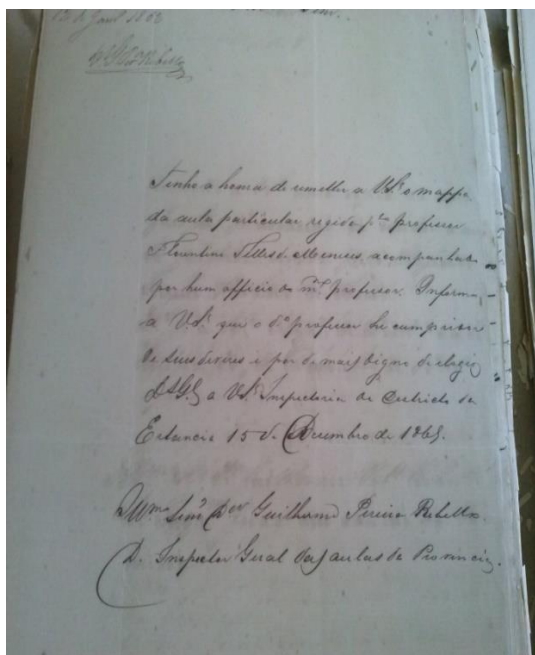 Tenho a honra de remetter a V.Sª o mappa
da aula particular regida pelo professor
Florentino Telles de Menezes, acompanhado
por hum officio do m.mo professor. Informo
a V.Sª que o d.º professor he cumpridor
de seus deveres e por de mais digno de elogio
D.s G.e a V.Sª Inspectoria do Districto da
Estancia 15 de Dezembro de 1865.
Illmo Senr Dor Guilherme Pereira Rebello.
D. Inspector Geral das aulas da Provincia.